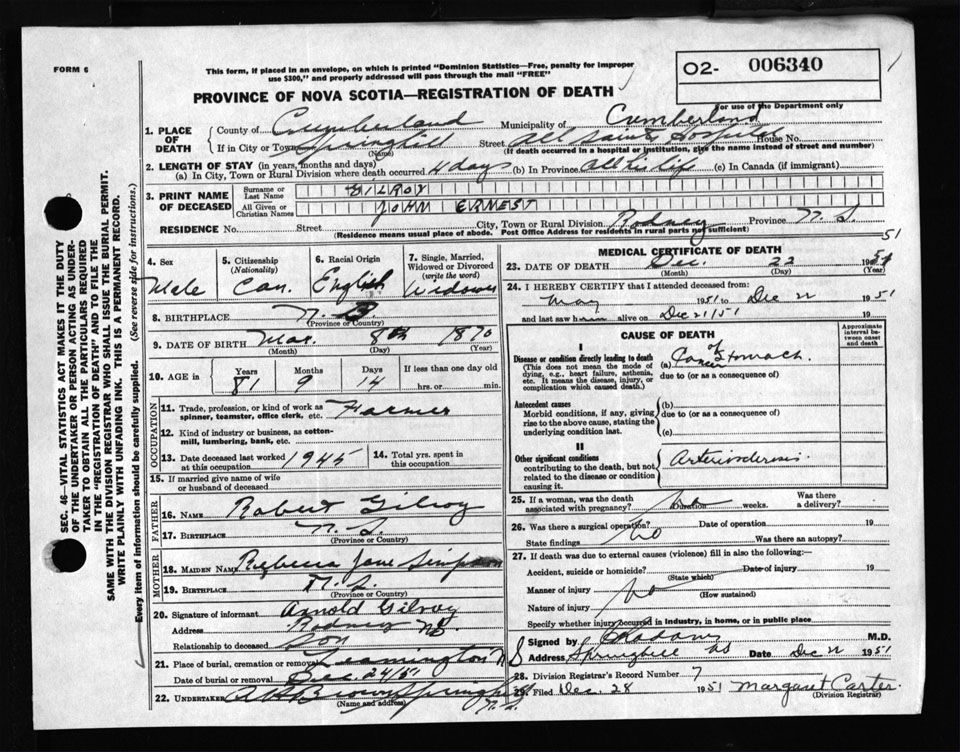 FORM 6
This form, if placed in an envelope, on which is printed "Dominion Statistics—Free, penalty for improper
use $300," and properly addressed will pass through the mail "FREE"
O2- 006340
For use of the Department only
PROVINCE OF NOVA SCOTIA—REGISTRATION OF DEATH
1. PLACE OF DEATH { County of Cumberland Municipality of Cumberland
If in City or Town Springhill (Name) Street All Saints Hospital House No.
(If death occurred in a hospital or institution, give the name instead of street and number)
2. LENGTH OF STAY (in years, months and days)
(a) In City, Town or Rural Division where death occurred 4 days (b) In Province all his life (c) In Canada (if immigrant)
3. PRINT NAME OF DECEASED { Surname or Last Name GILROY
All Given or Christian Names JOHN ERNEST
RESIDENCE No. Street City, Town or Rural Division Rodney Province N. S.
(Residence means usual place of abode. Post Office Address for residents in rural parts not sufficient)
4. Sex Male
5. Citizenship (Nationality) Can.
6. Racial Origin English
7. Single, Married, Widowed or Divorced (write the word) Widower
8. BIRTHPLACE N. B. (Province or Country)
9. DATE OF BIRTH Mar. (Month) 8th (Day) 1870 (Year)
10. AGE in { Years 81 Months 9 Days 14 If less than one day old hrs. or min.
OCCUPATION
11. Trade, profession, or kind of work as spinner, teamster, office clerk, etc. Farmer
12. Kind of industry or business, as cotton-mill, lumbering, bank, etc.
13. Date deceased last worked at this occupation 1945
14. Total yrs. spent in this occupation
15. If married give name of wife or husband of deceased
FATHER
16. NAME Robert Gilroy
17. BIRTHPLACE N. S. (Province or Country)
MOTHER
18. MAIDEN NAME Rebecca Jane Simpson
19. BIRTHPLACE N. S. (Province or Country)
20. Signature of informant Arnold Gilroy
Address Rodney NS.
Relationship to deceased Son
21. Place of burial, cremation or removal Leamington N
Date of burial or removal Dec. 24/51
22. UNDERTAKER Brown Springhill N.S.
(Name and address)
MEDICAL CERTIFICATE OF DEATH
51
23. DATE OF DEATH Dec. (Month) 22 (Day) 19 (Year)
24. I HEREBY CERTIFY that I attended deceased from:
May 1951 to Dec 22 1951
and last saw him alive on Dec 21/51
CAUSE OF DEATH
Approximate interval between onset and death
I
Disease or condition directly leading to death
(This does not mean the mode of dying, e.g., heart failure, asthenia, etc. It means the disease, injury, or complication which caused death.)
(a) Cancer of Stomach.
due to (or as a consequence of)
Antecedent causes
Morbid conditions, if any, giving rise to the above cause, stating the underlying condition last.
(b)
due to (or as a consequence of)
(c)
II
Other significant conditions
contributing to the death, but not related to the disease or condition causing it.
Arteriosclerosis.
25. If a woman, was the death associated with pregnancy? Duration weeks. Was there a delivery?
26. Was there a surgical operation? No Date of operation 19
State findings Was there an autopsy?
27. If death was due to external causes (violence) fill in also the following:—
Accident, suicide or homicide? (State which) Date of injury 19
Manner of injury No (How sustained)
Nature of injury
Specify whether injury occurred in industry, in home, or in public place
Signed by M.D.
Address Springhill NS Date Dec 22 1951
28. Division Registrar's Record Number 7
29. Filed Dec. 28 1951 Margaret Carter.
(Division Registrar)
SEC. 46—VITAL STATISTICS ACT MAKES IT THE DUTY
OF THE UNDERTAKER OR PERSON ACTING AS UNDER-
TAKER TO OBTAIN ALL THE PARTICULARS REQUIRED
IN THE "REGISTRATION OF DEATH" AND TO FILE THE
SAME WITH THE DIVISION REGISTRAR WHO SHALL ISSUE THE BURIAL PERMIT.
WRITE PLAINLY WITH UNFADING INK. THIS IS A PERMANENT RECORD.
Every item of information should be carefully supplied. (See reverse side for instructions.)